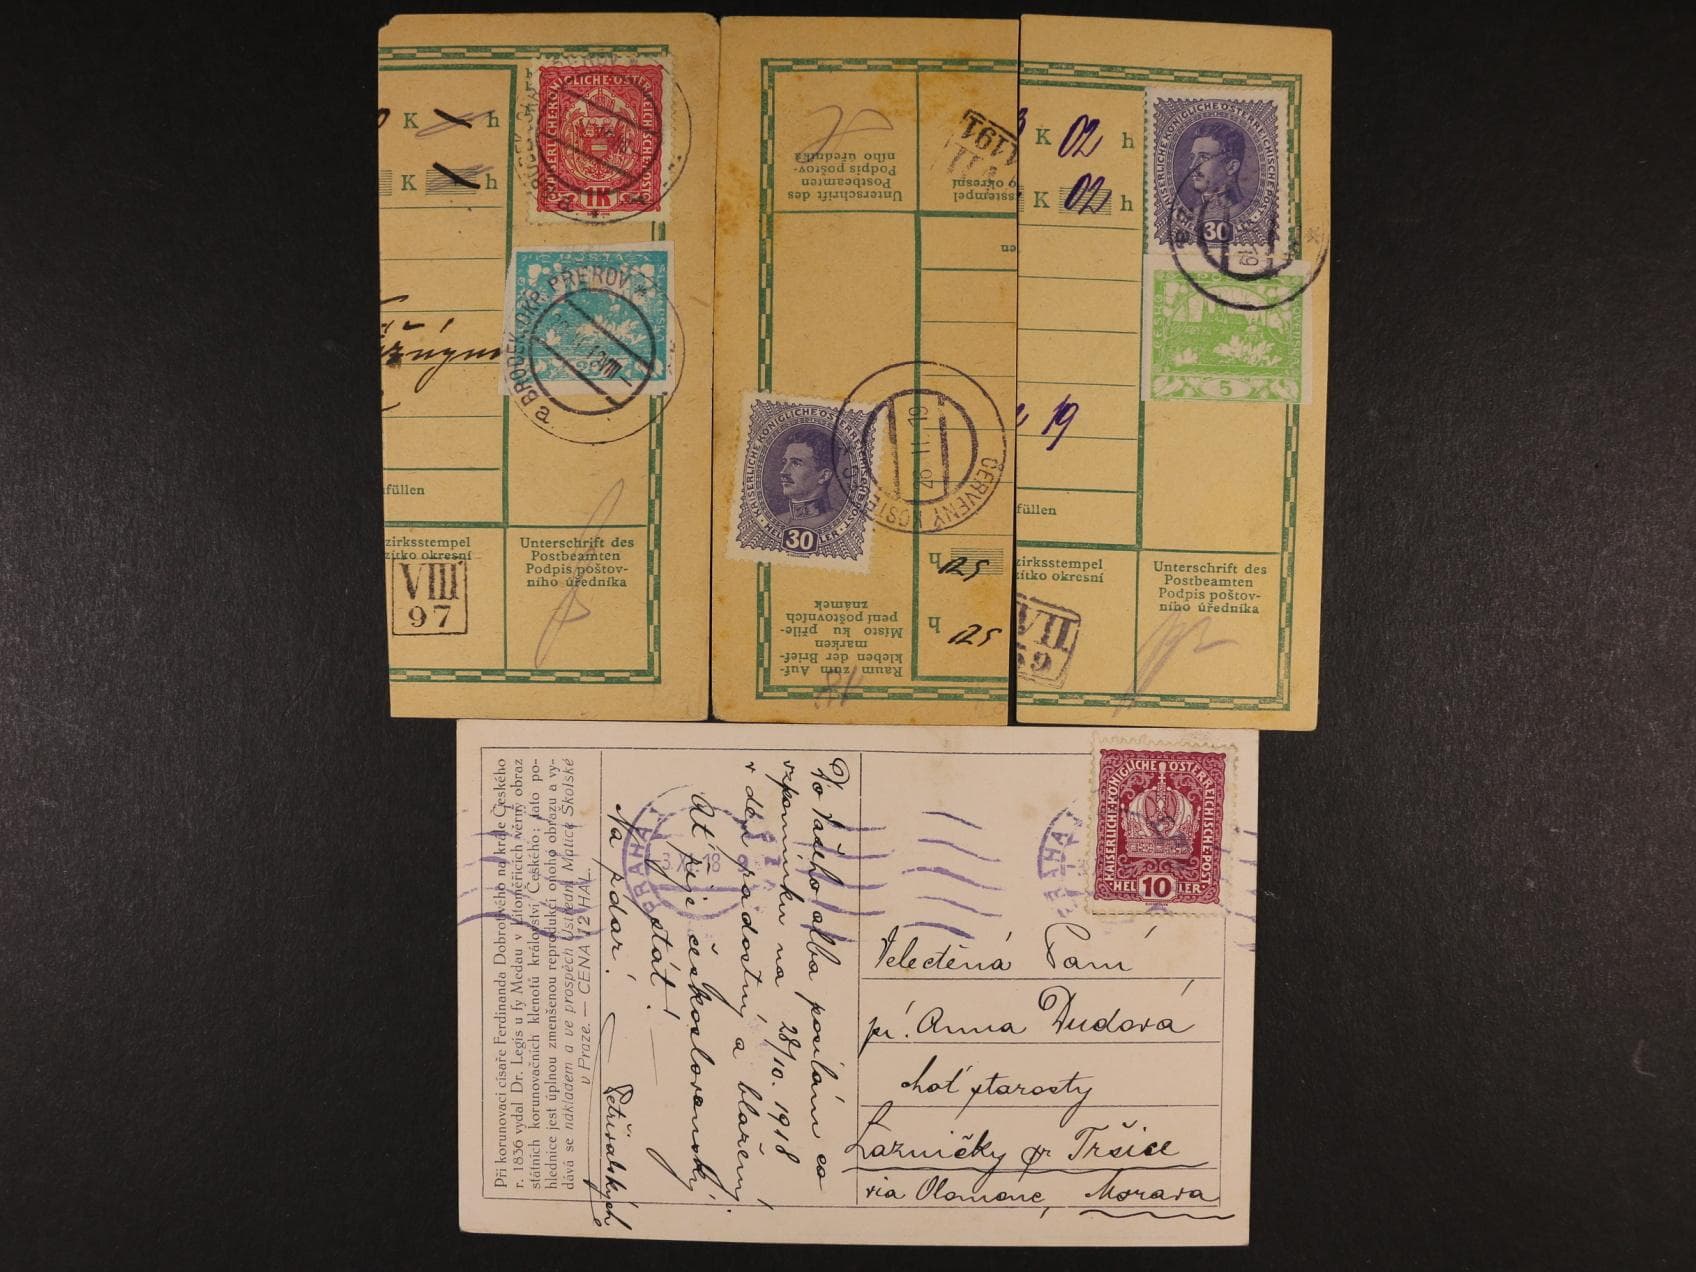 K h
K h
KAISERLICHE KÖNIGLICHE ÖSTERREICHISCHE POST
1K
POŠTA
a BRODEK, OKR. PŘEROV *
füllen
zirksstempel
zítko okresní
VIII
97
Unterschrift des
Postbeamten
Podpis poštov-
ního úředníka
Unterschrift des
Postbeamten
Podpis poštov-
ního úředníka
KAISERLICHE KÖNIGLICHE ÖSTERREICHISCHE POST
30
HEL LER
ČERVENÝ KOSTELEC
26.II.19
h 125
h 125
Raum zum Auf-
kleben der Brief-
marken
Místo ku přile-
pení poštovních
známek
K 02 h
K 02 h
KAISERLICHE KÖNIGLICHE ÖSTERREICHISCHE POST
30
HEL LER
5
19
füllen
zirksstempel
zítko okresní
VII
59
Unterschrift des
Postbeamten
Podpis poštov-
ního úředníka
Při korunovaci císaře Ferdinanda Dobrotivého na krále Českého
r. 1836 vydal Dr. Legis u fy Medau v Litoměřicích věrný obraz
státních korunovačních klenotů království Českého; tato po-
hlednice jest úplnou zmenšenou reprodukcí onoho obrazu a vy-
dává se nákladem a ve prospěch Ústřední Matice Školské
v Praze. — CENA 12 HAL.
Do Vašeho alba posílám co
vzpomínku na 28/10. 1918
v den radostný a blažený.
Ať žije československý
stát!
Na zdar!
PRAHA
3 XI 18
KAISERLICHE KÖNIGLICHE ÖSTERREICHISCHE POST
HEL 10 LER
PRAHA
Velectěná Paní
pí. Anna Dudová
choť starosty
Lazničky pr Tršice
via Olomouc, Morava